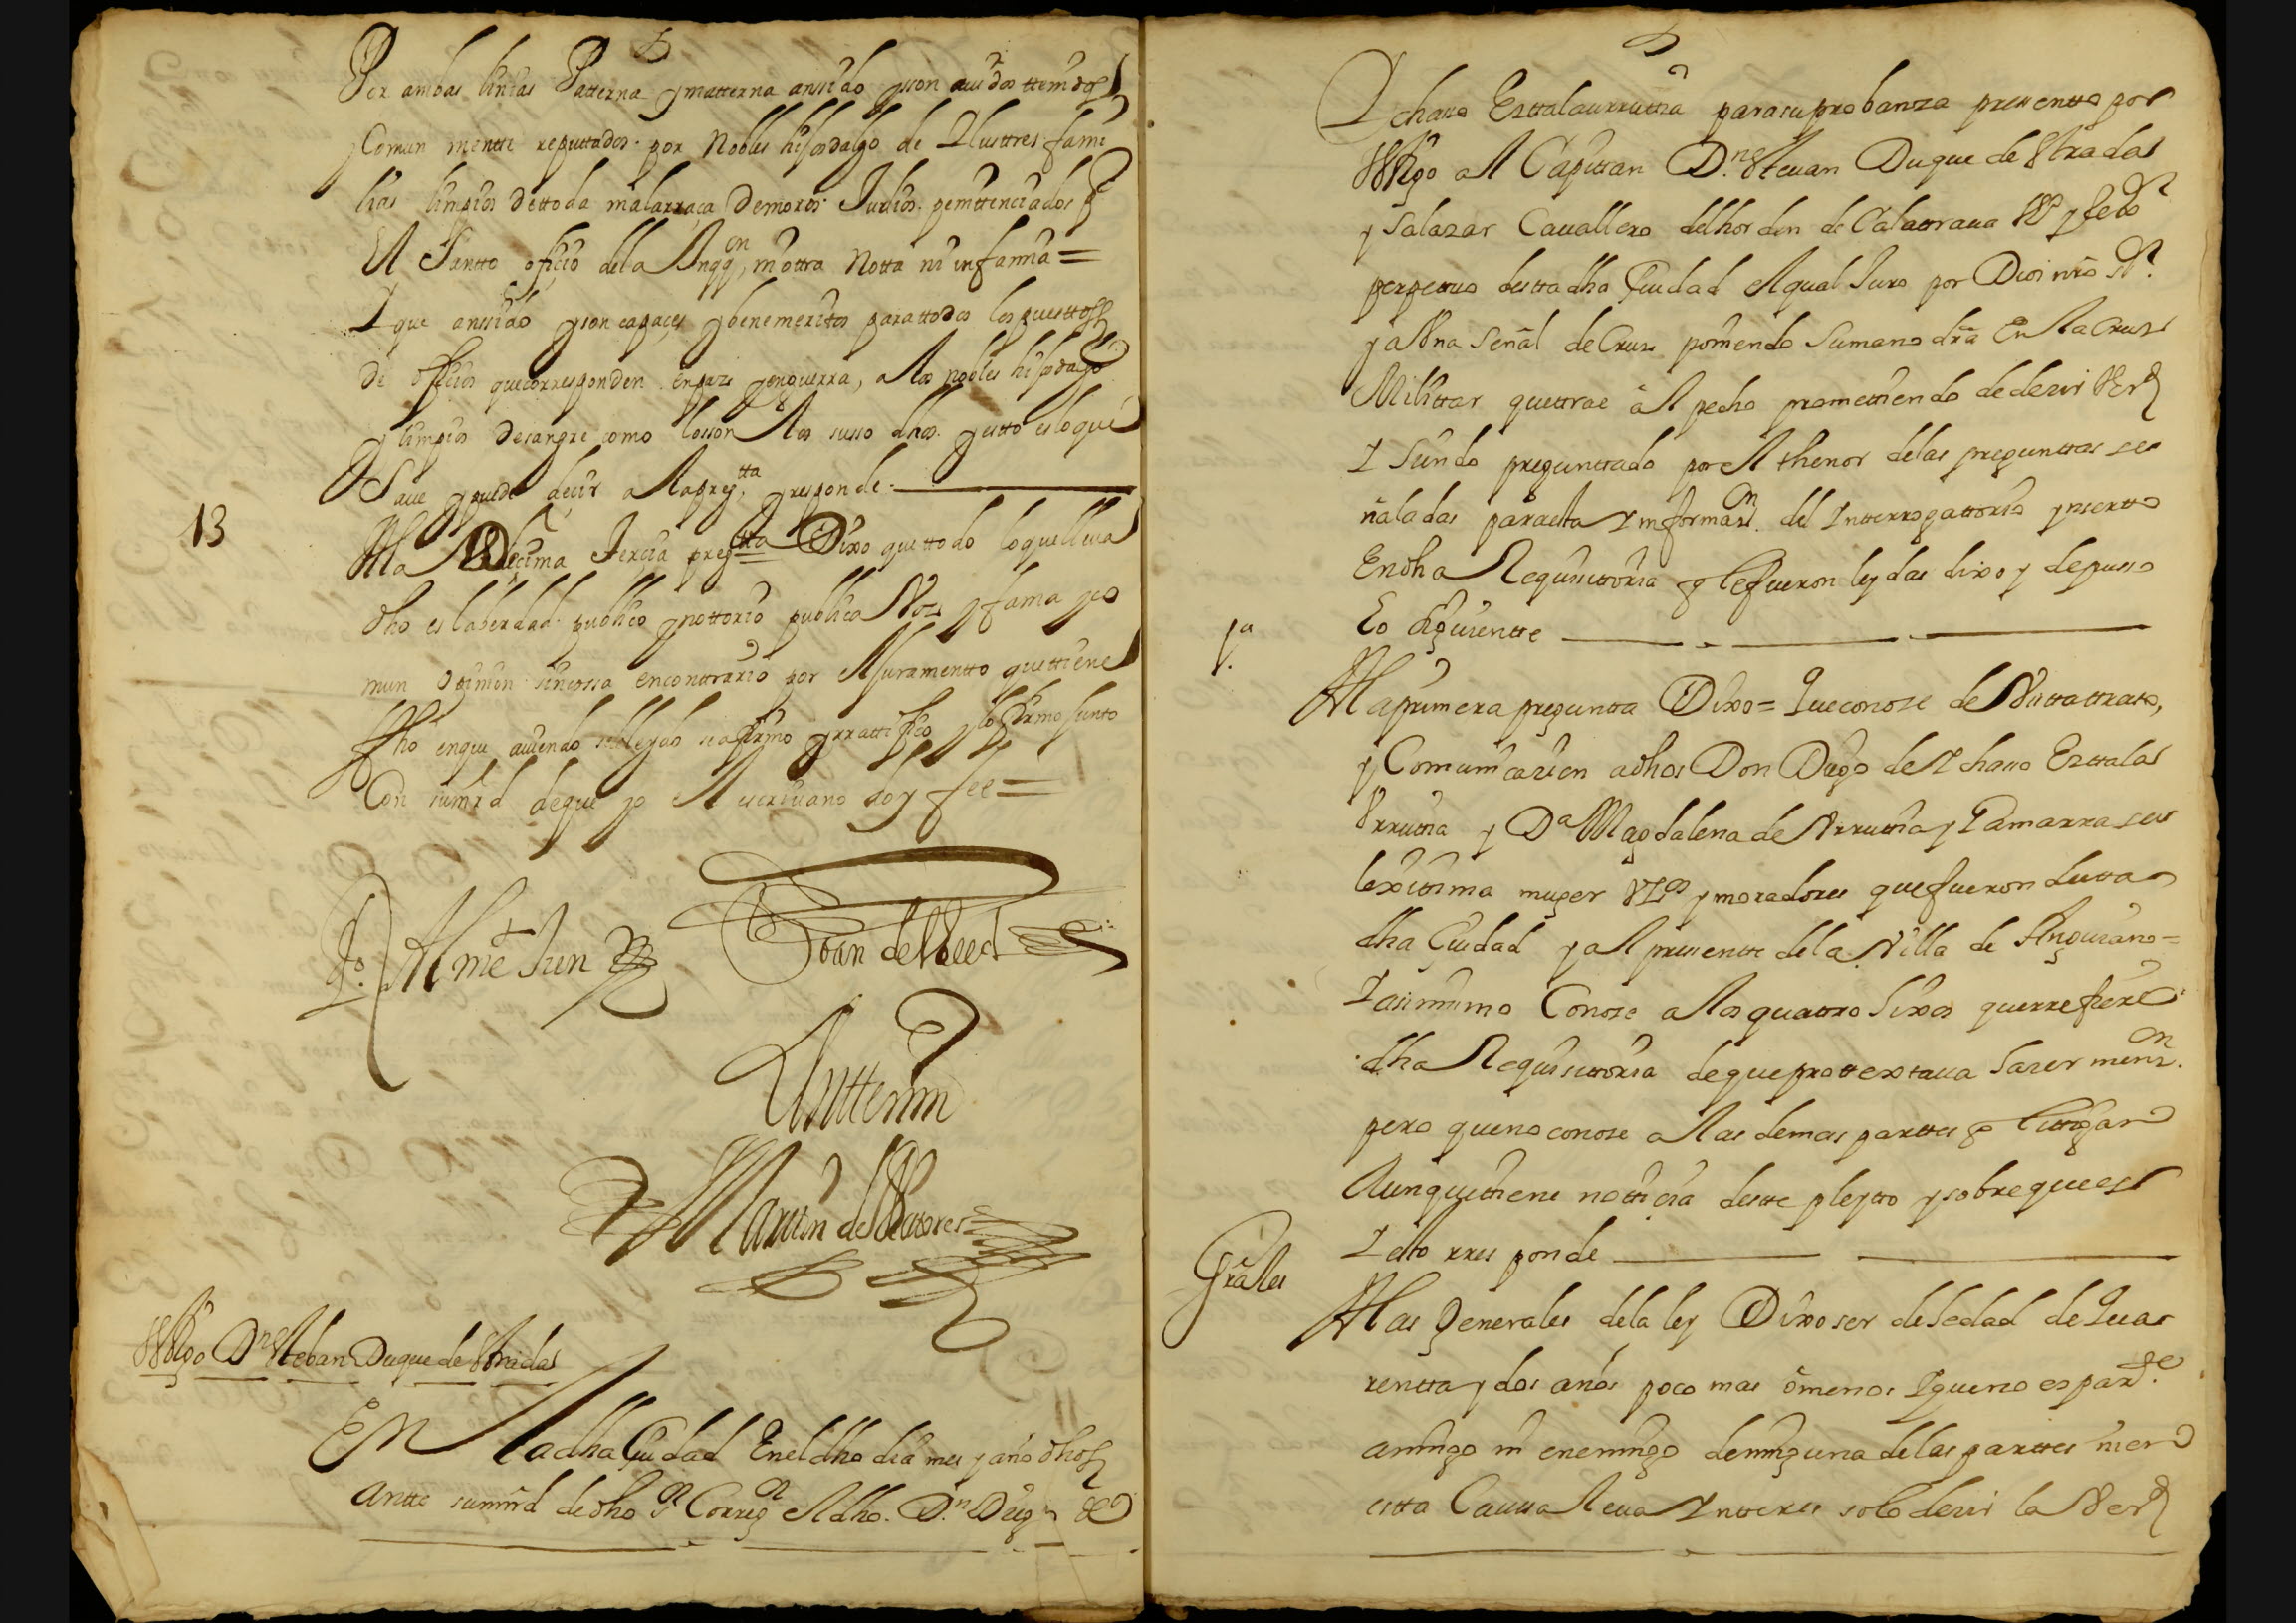 Por ambas linias Patterna y matterna an sido y son auidos ttenidos
y Comun mentte reputtados por Nobles hijosdalgo de Yllusttres fami
lias limpios de ttoda mala rraça de moros Judios penittenciados por
El Santto oficio de la Ynqq.on, ni ottra Notta ni infamia =
Y que an sido y son capaçes y benemeritos para ttodos los puesttos
de ofiçios que corresponden en paz y en guerra, a los nobles hijosdalgo
y limpios de sangre como lo son los suso dhos. y estto es lo que
Saue y puede deçir a la preg.tta y responde.
13
A la Deçima Terçia preg.tta Dixo que ttodo lo que lleua
dho es la berdad publico y nottorio publica Voz y fama y co
mun opinion sin cossa en conttrario por el juramentto que ttiene
fho en que auiendo sele leydo se afirmo y rrattifico y lo firmo juntto
Con su mrd de que yo el escriuano doy fee =
Antte mi
Marttin de
Ttgo Dn Steban Duque de Stradas
En la dha Ciudad En el dho dia mes y año dhos
antte su mrd de dho Sr Correg.or el dho. D.n Diego de
Ychauo Ezttalaurruttia para su probanza presentto por
ttgo al Capittan D.n Steuan Duque de Stradas
y Salazar Cauallero del horden de Calattraua
perpettuo destta dha Ciudad el qual Juro por Dios nro Sr.
y a Una Señal de Cruz poniendo Su mano dra En la Cruz
Milittar que ttrae al pecho promettiendo de dezir Verd
Y Siendo preguntado por el thenor de las preguntas se
ñaladas para esta Ynformaz.on del Ynterrogattorio ynsertto
En dha Requisittoria q le fueron leydas dixo y depusso
Lo Siguientte
1.a
A la primera pregunta Dixo = Que conoze de Vistta ttrato,
y Comunicazion a dhos Don Diego de Ychauo Ezttala
Vrruttia y Da Magdalena de Vrruttia y Gamarra su
lexittima muger Vz.os y moradores que fueron destta
dha Ciudad y al presentte de la Villa de Anguiano =
Y asimismo Conoze a los quattro hixos que rrefiere
dha Requisittoria de que prottextaua hazer menz.on
pero que no conoze a las demas parttes q littigan
Aunque ttiene notticia destte pleytto y sobre que es
Y esto rresponde
Grales
A las generales de la ley Dixo ser de hedad de Quar
rentta y dos años poco mas o menos Y que no es par.te
amigo ni enemigo de ninguna de las parttes ni en
estta Caussa lleua Ynteres solo dezir la Verd